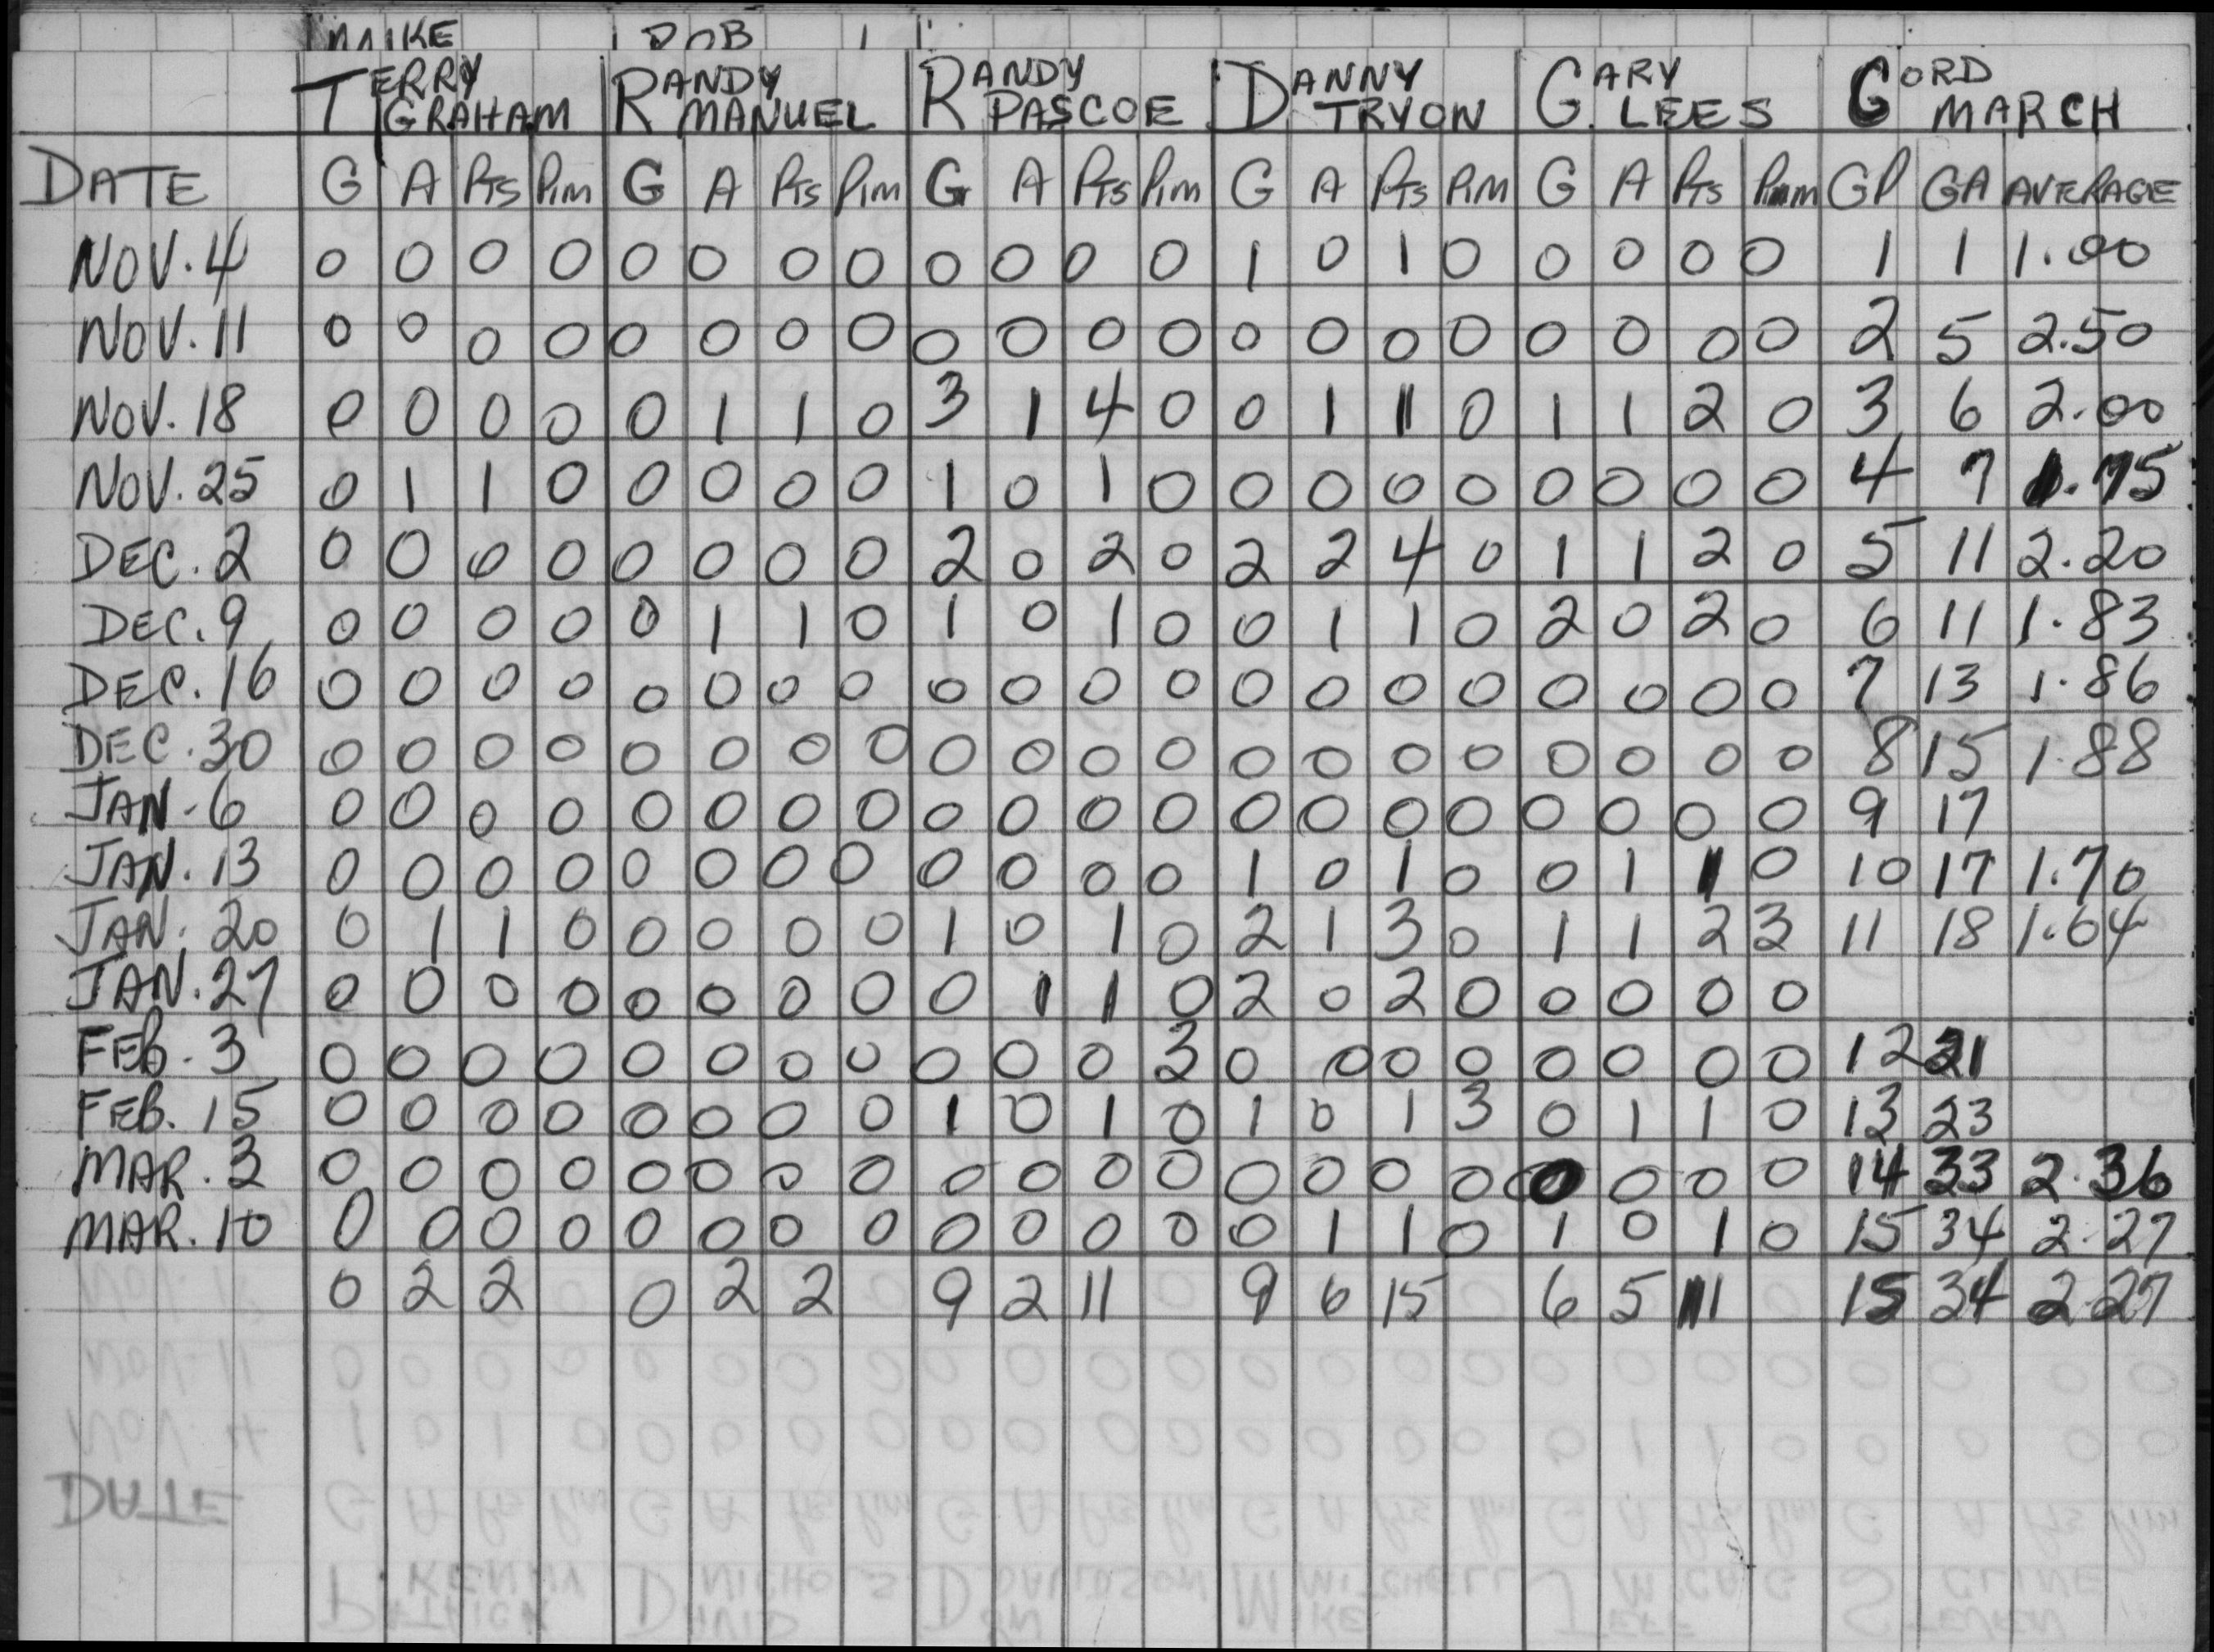 MIKE ROB
TERRY GRAHAM RANDY MANUEL RANDY PASCOE DANNY TRYON GARY LEES GORD MARCH
DATE G A Pts Pim G A Pts Pim G A Pts Pim G A Pts Pim G A Pts Pim GP GA AVERAGE
NOV. 4 0 0 0 0 0 0 0 0 0 0 0 0 1 0 1 0 0 0 0 0 1 1 1.00
NOV. 11 0 0 0 0 0 0 0 0 0 0 0 0 0 0 0 0 0 0 0 0 2 5 2.50
NOV. 18 0 0 0 0 0 1 1 0 3 1 4 0 0 1 1 0 1 1 2 0 3 6 2.00
NOV. 25 0 1 1 0 0 0 0 0 1 0 1 0 0 0 0 0 0 0 0 0 4 7 1.75
DEC. 2 0 0 0 0 0 0 0 0 2 0 2 0 2 2 4 0 1 1 2 0 5 11 2.20
DEC. 9 0 0 0 0 0 1 1 0 1 0 1 0 0 1 1 0 2 0 2 0 6 11 1.83
DEC. 16 0 0 0 0 0 0 0 0 0 0 0 0 0 0 0 0 0 0 0 0 7 13 1.86
DEC. 30 0 0 0 0 0 0 0 0 0 0 0 0 0 0 0 0 0 0 0 0 8 15 1.88
JAN. 6 0 0 0 0 0 0 0 0 0 0 0 0 0 0 0 0 0 0 0 0 9 17
JAN. 13 0 0 0 0 0 0 0 0 0 0 0 0 1 0 1 0 0 1 1 0 10 17 1.70
JAN. 20 0 1 1 0 0 0 0 0 1 0 1 0 2 1 3 0 1 1 2 3 11 18 1.64
JAN. 27 0 0 0 0 0 0 0 0 0 1 1 0 2 0 2 0 0 0 0 0
FEB. 3 0 0 0 0 0 0 0 0 0 0 0 3 0 0 0 0 0 0 0 0 12 21
FEB. 15 0 0 0 0 0 0 0 0 1 0 1 0 1 0 1 3 0 1 1 0 13 23
MAR. 3 0 0 0 0 0 0 0 0 0 0 0 0 0 0 0 0 0 0 0 0 14 33 2.36
MAR. 10 0 0 0 0 0 0 0 0 0 0 0 0 0 1 1 0 1 0 1 0 15 34 2.27
0 2 2 0 2 2 9 2 11 9 6 15 6 5 11 15 34 2.27